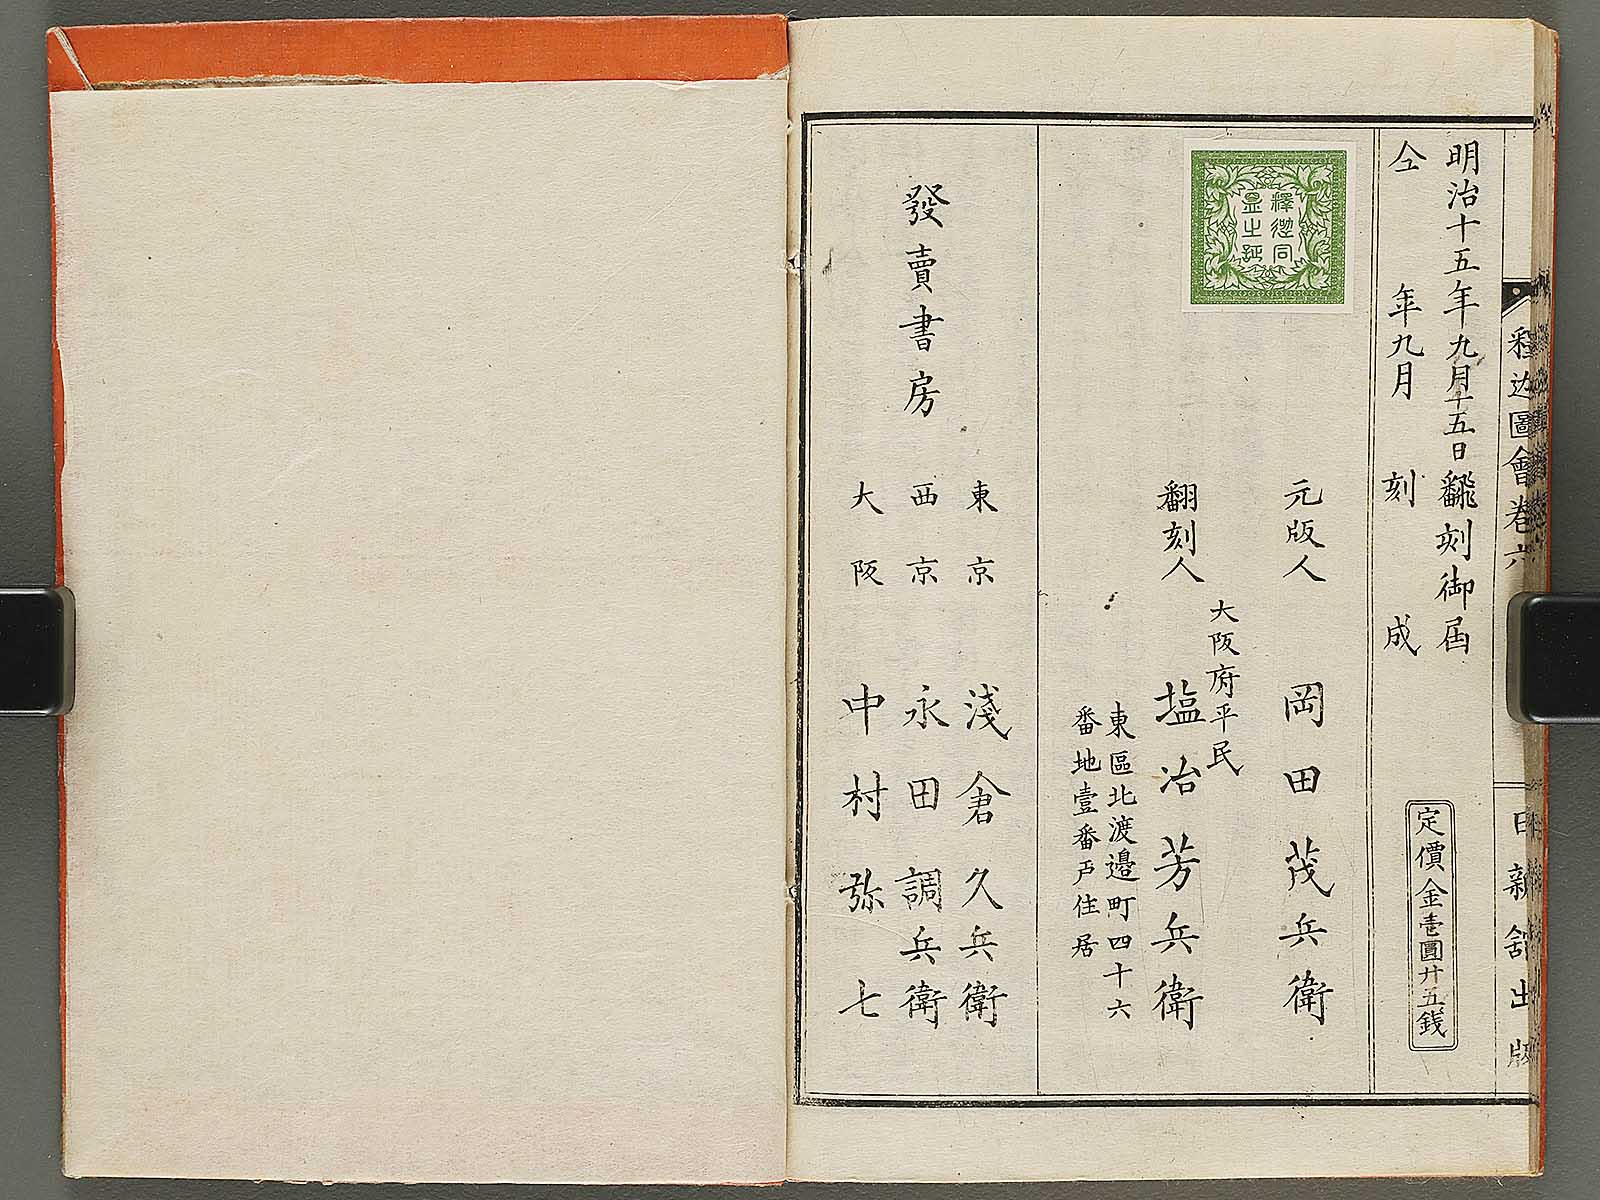 釈迦圖會卷六
日新舘出版
明治十五年九月十五日飜刻御届
仝年九月刻成
定價金壱圓廿五銭
元版人 岡田茂兵衛
大阪府平民
翻刻人 塩冶芳兵衛
東區北渡邉町四十六
番地壹番戸住居
發賣書房
東京 淺倉久兵衛
西京 永田調兵衛
大阪 中村弥七